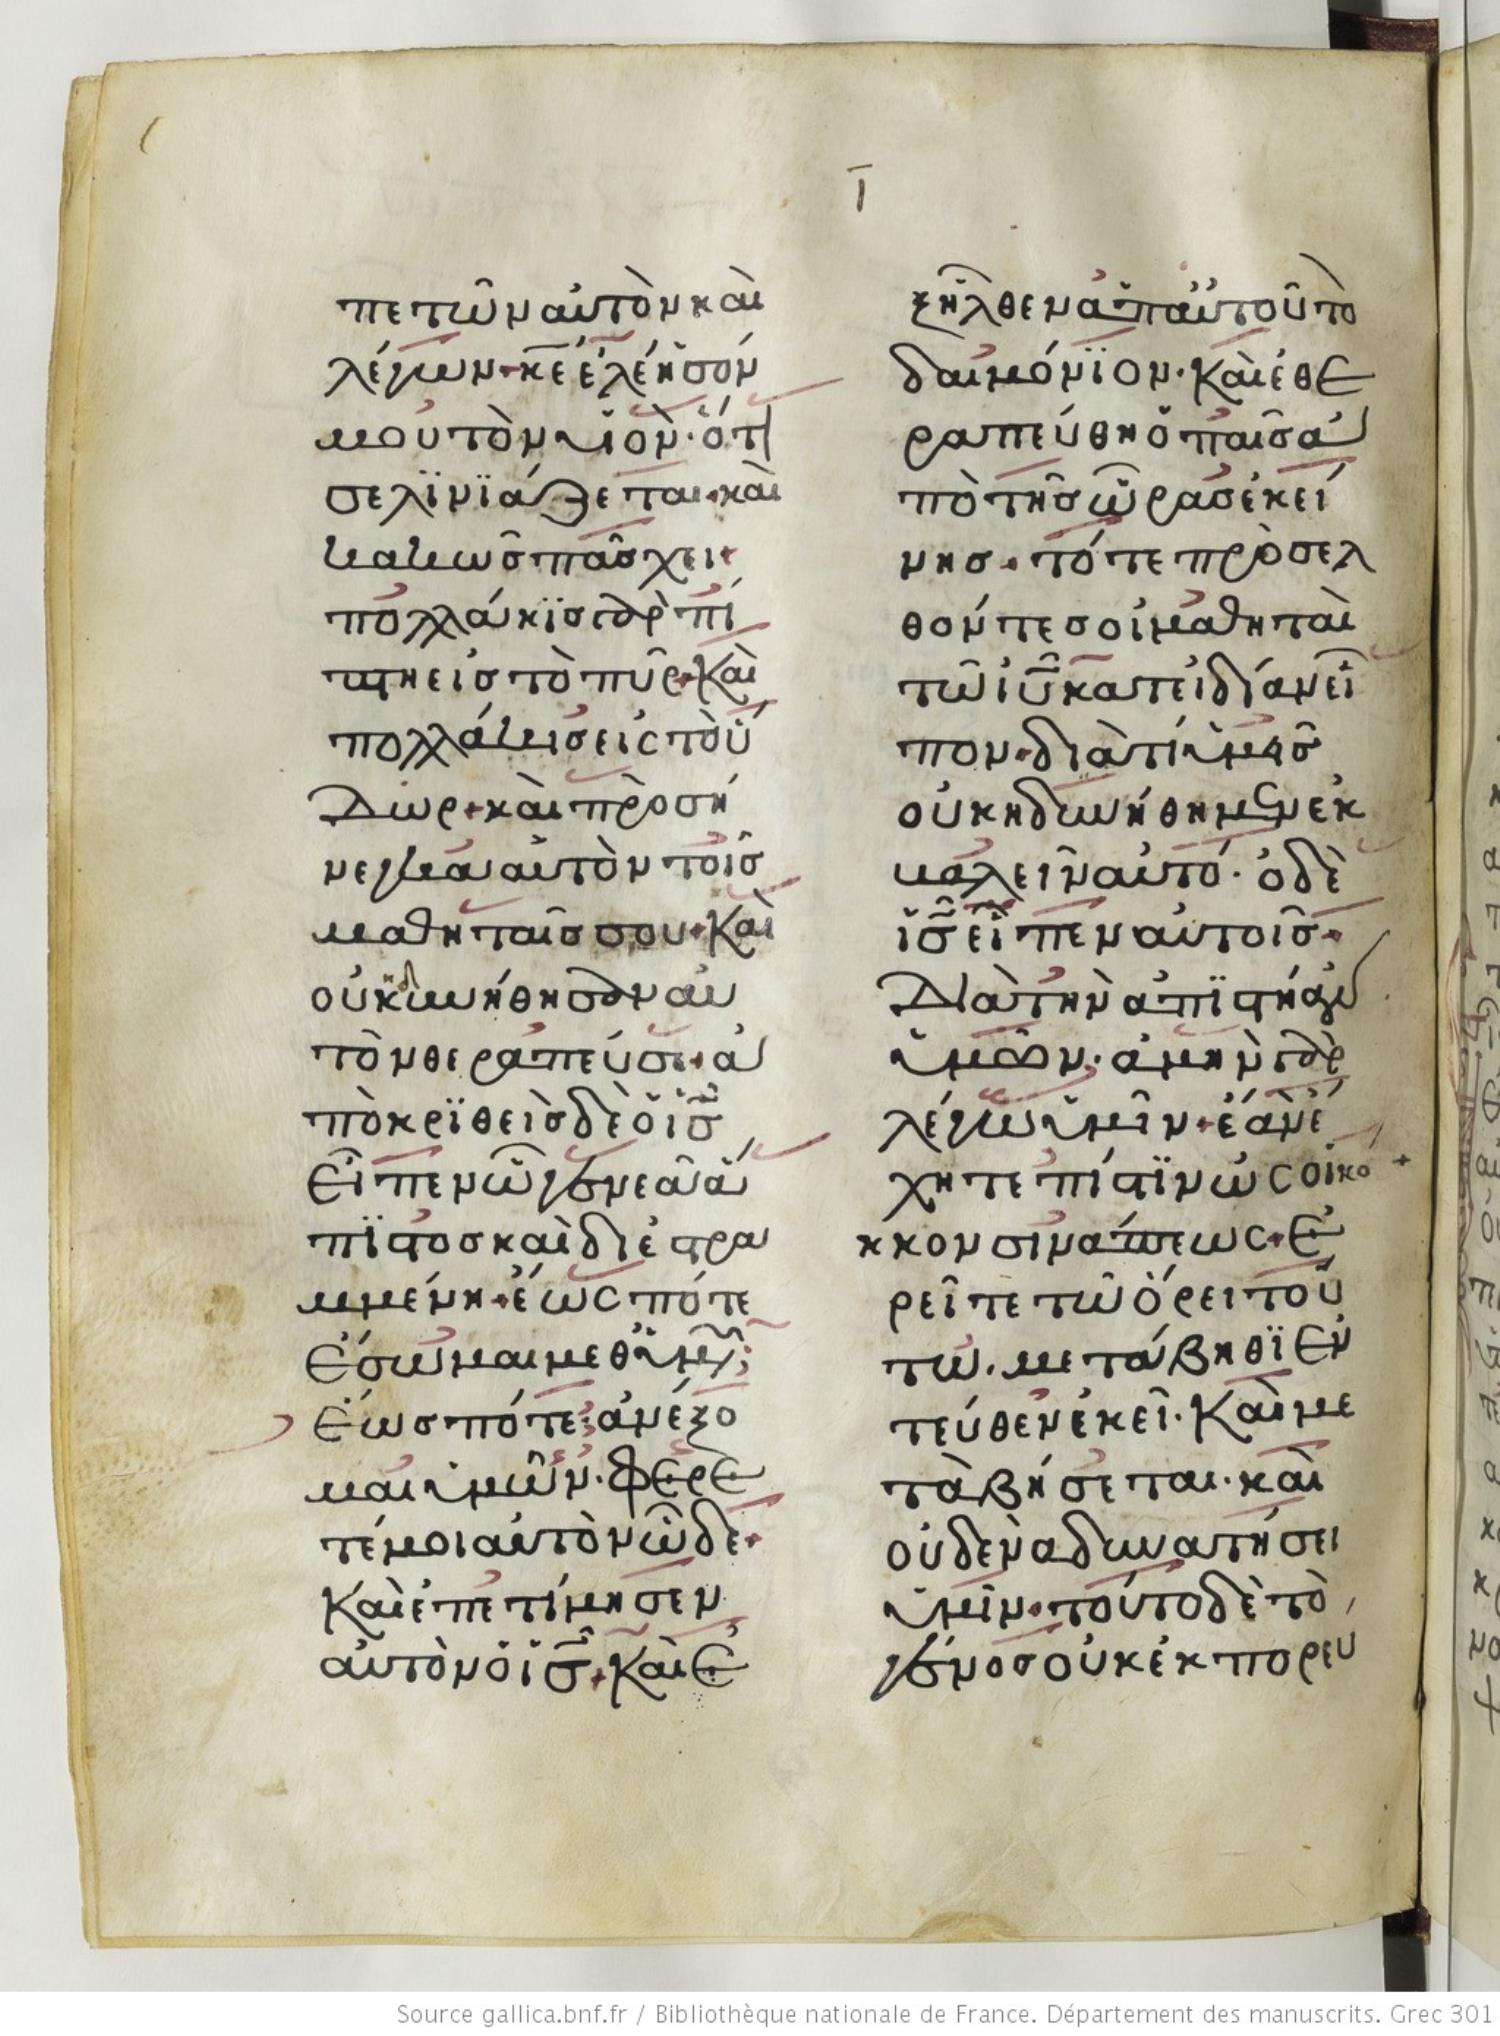 Ι
πετῶν αὐτὸν καὶ
λέγων· κε ἐλέησόν
μου τὸν υἱὸν· ὅτι
σελϊνϊάζεται· καὶ
κακῶς πάσχει·
πολλάκϊς γὰρ πί
πτει εἰς τὸ πῦρ· Καὶ
πολλάκις εἰς τὸ ὕ
δωρ· καὶ προσή
νεγκα αὐτὸν τοῖς
μαθηταῖς σου· Καὶ
οὐκ ἠδυνήθησαν αυ
τὸν θεραπεύσαι· ἀ
πὸκρϊθεὶς δὲ ὁ ις
Εἶπεν ὦ γενεὰ ἄ
πϊστος καὶ διεστρα
μμένη· ἕως πότε
Ἔσωμαι μεθ' ὑμῶν;
Ἕως πότε; ἀνέξο
μαι ὑμῶν· φέρε
τέ μοι αὐτὸν ὧδε·
Καὶ ἐπετίμησεν
αὐτὸν ὁ ις· Καὶ ἐ
ξῆλθεν ἀπ' αὐτοῦ τὸ
δαιμόνϊον· Καὶ ἐθε
ραπεύθη ὁ παῖς ἀ
πὸ τῆς ὥρας ἐκεί
νης· τότε πρὸσελ
θόντες οἱ μαθηταὶ
τῶ ιυ κατ' ειδίαν εἶ
πον· διὰ τί ὑμεῖς
οὐκ ηδυνήθημεν ἐκ
βαλεῖν αὐτό· ὁ δὲ
ις εἶπεν αὐτοῖς·
Διὰ τὴν ἀπϊστήαν
ὑμῶν· ἀμὴν γὰρ
λέγω ὑμῖν· ἐὰν ἔ
χητε πίστϊν ὡς οἱ κό
κκον σινάπεως· Ἐ
ρεῖτε τῶ ὄρει τού
τω· μετάβηθϊ ἐν
τεύθεν ἐκεῖ· Καὶ με
τὰβήσεται· καὶ
οὐδὲν ἀδυνατήσει
ὑμῖν· τοῦτο δὲ τὸ
γένος οὐκ ἐκπορευ
Source gallica.bnf.fr / Bibliothèque nationale de France. Département des manuscrits. Grec 301